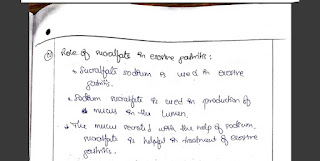 Role of sucralfate in erosive gastritis :
* Sucralfate sodium is used in erosive
gastritis.
* Sodium sucralfate is used in production of
mucus in the lumen.
* The mucus secreted with the help of sodium
sucralfate is helpful in treatment of erosive
gastritis.